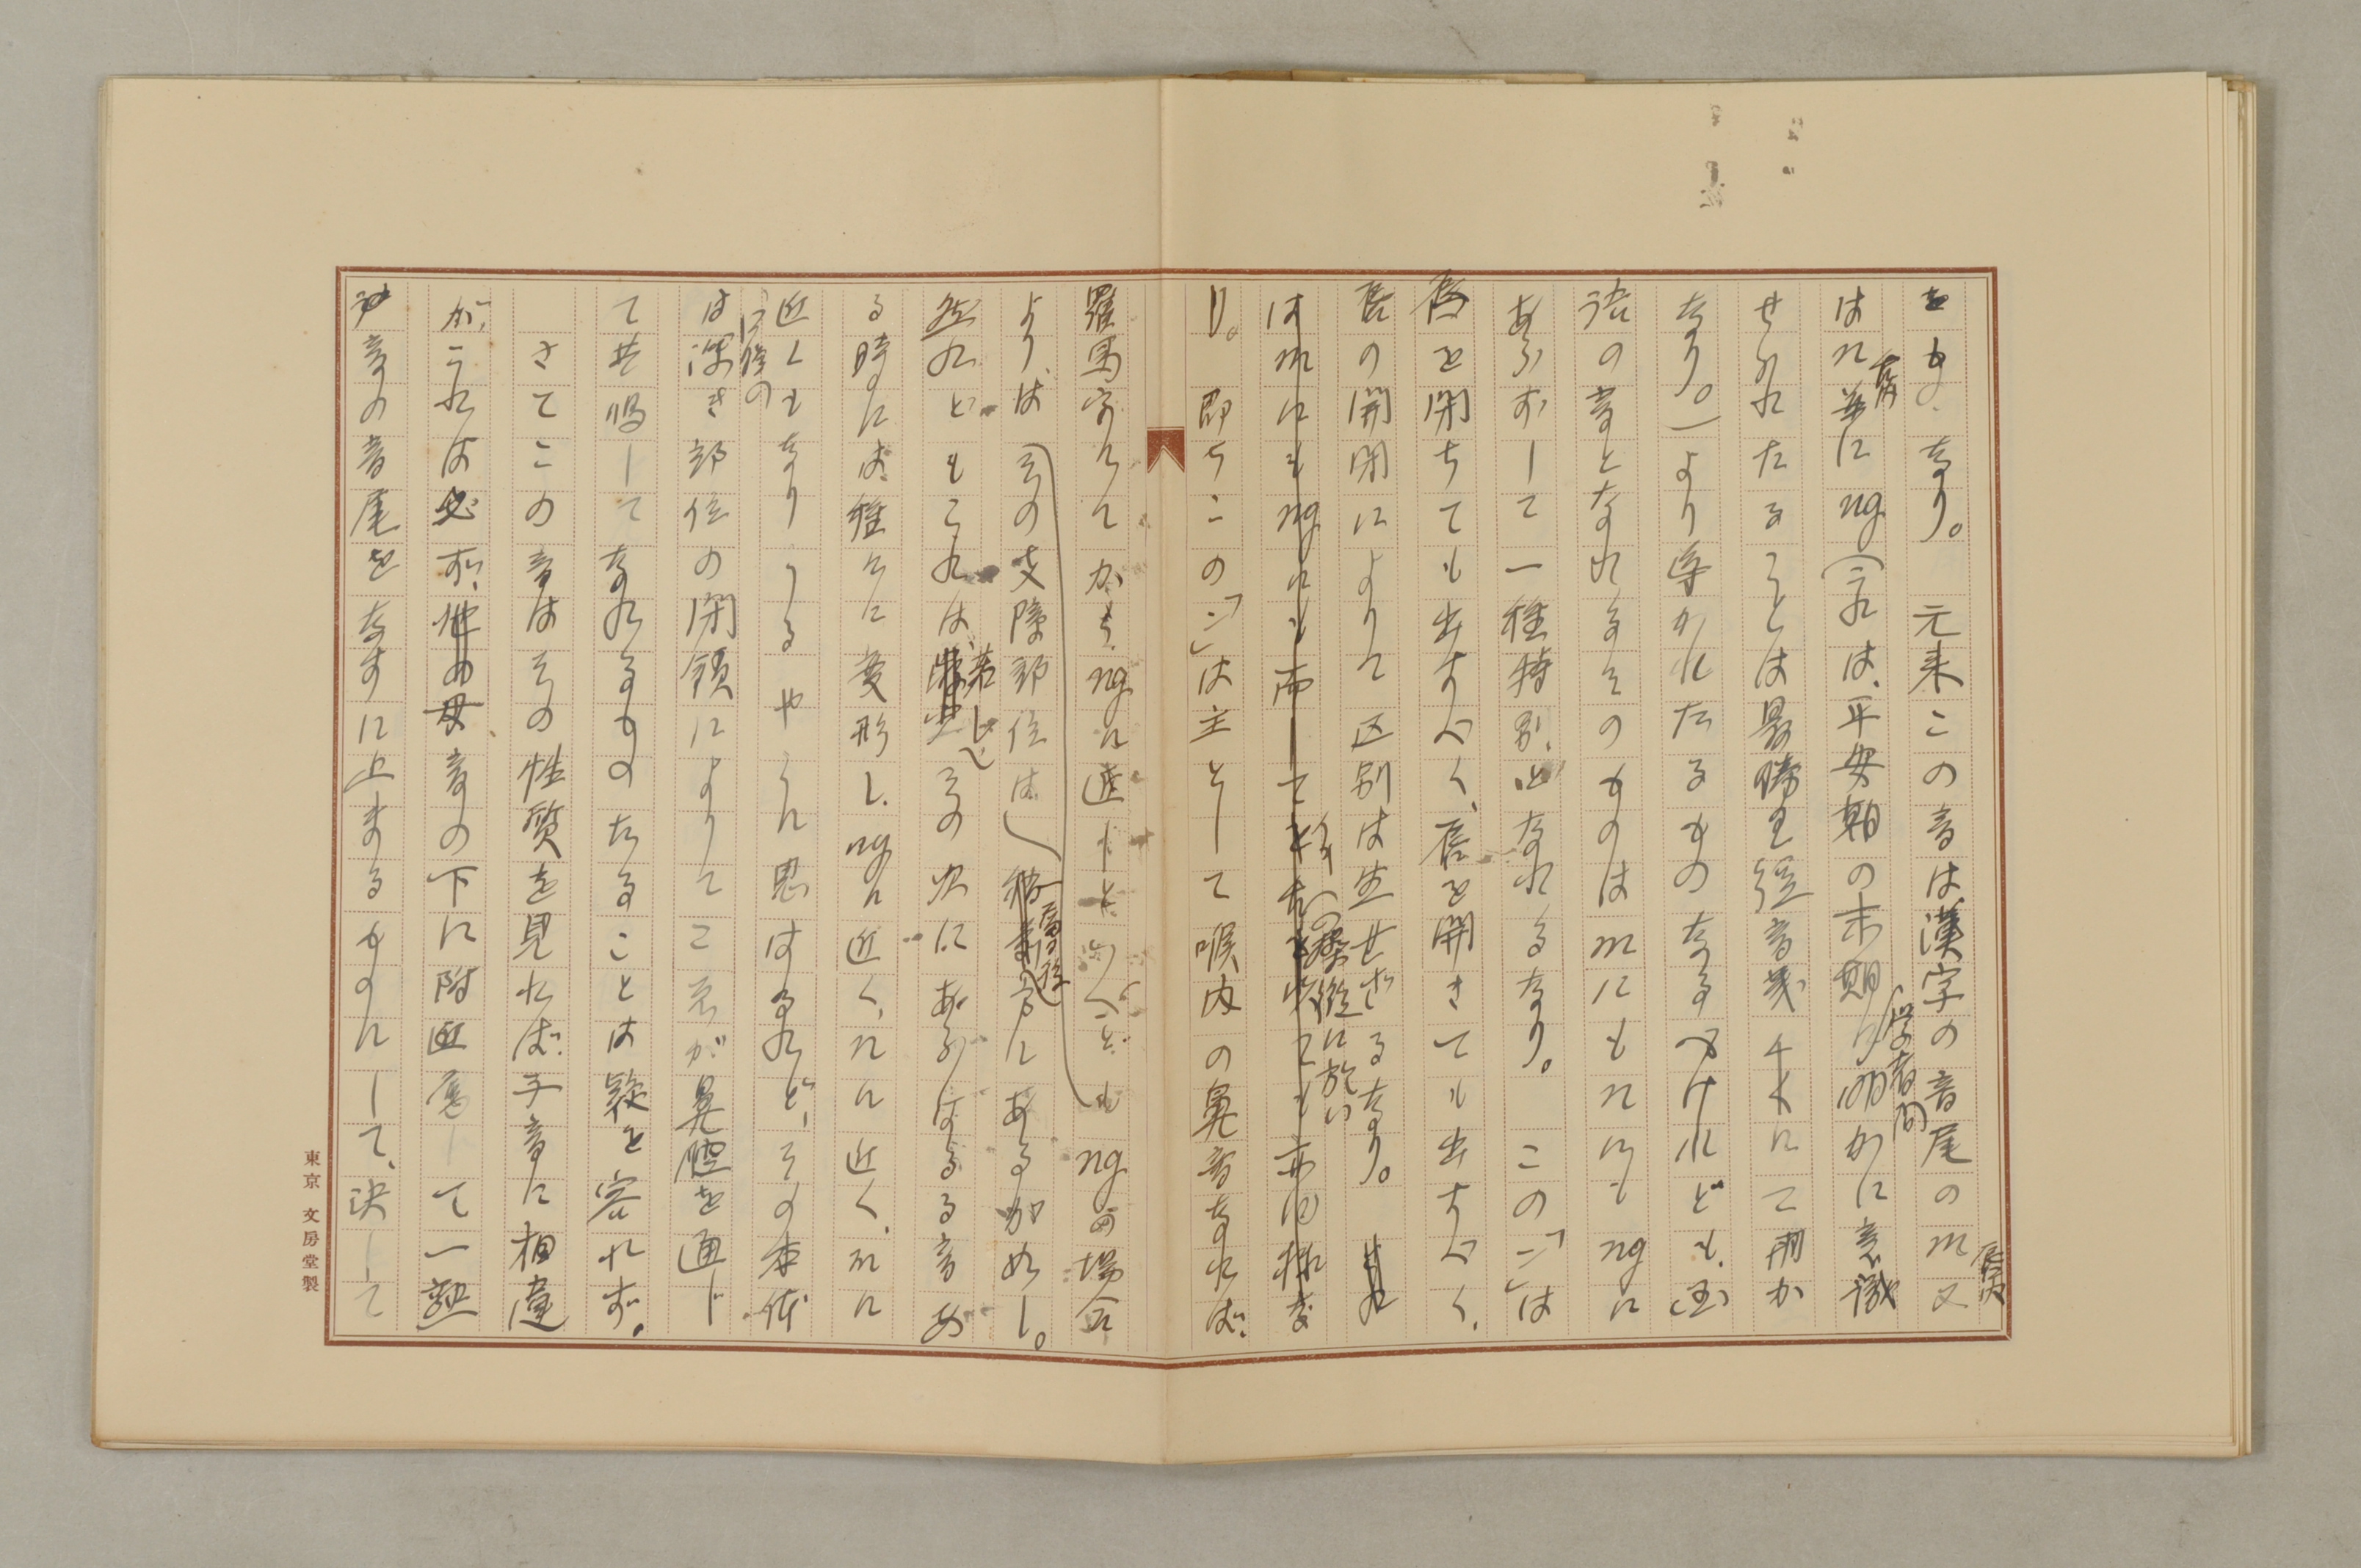 をも、なり。元来この音は漢字の音尾のm又
唇内
はn並にng(これは、平安朝の末期
学者間
明かに意識
せられたることは最勝王経音義などにて明か
なり。)より導かれたるものなるべけれども、国
語の音となれるそのものはmにもnにもngに
あらずして一種特別なる なり。この「ン」は
唇を閉ぢても出すべく、唇を開きても出すべく、
唇の開閉によりて区別は生ぜざるなり。
はmにもngにも而して
り。即ちこの「ン」は主として喉内の鼻音なれば、
羅馬字 ngに ngの場合
より、は(その支障部位は) 方にあるが如し。
然れどもこれは、若し その次にあらはるる音あ
る時には、種々に変形し、ngに近く、nに近く、mに
近くもなりうるやうに思はるれど、その本体
は深き部位の閉鎖によりてこゑが鼻腔を通じ
て共鳴してなれるものたることは疑を容れず。
さてこの音はその性質を見れば、子音に相違
が、これは必ず、他の母音の下に附 して一熟
音の音尾をなすに止まるものにして、決して
東京 文房堂製